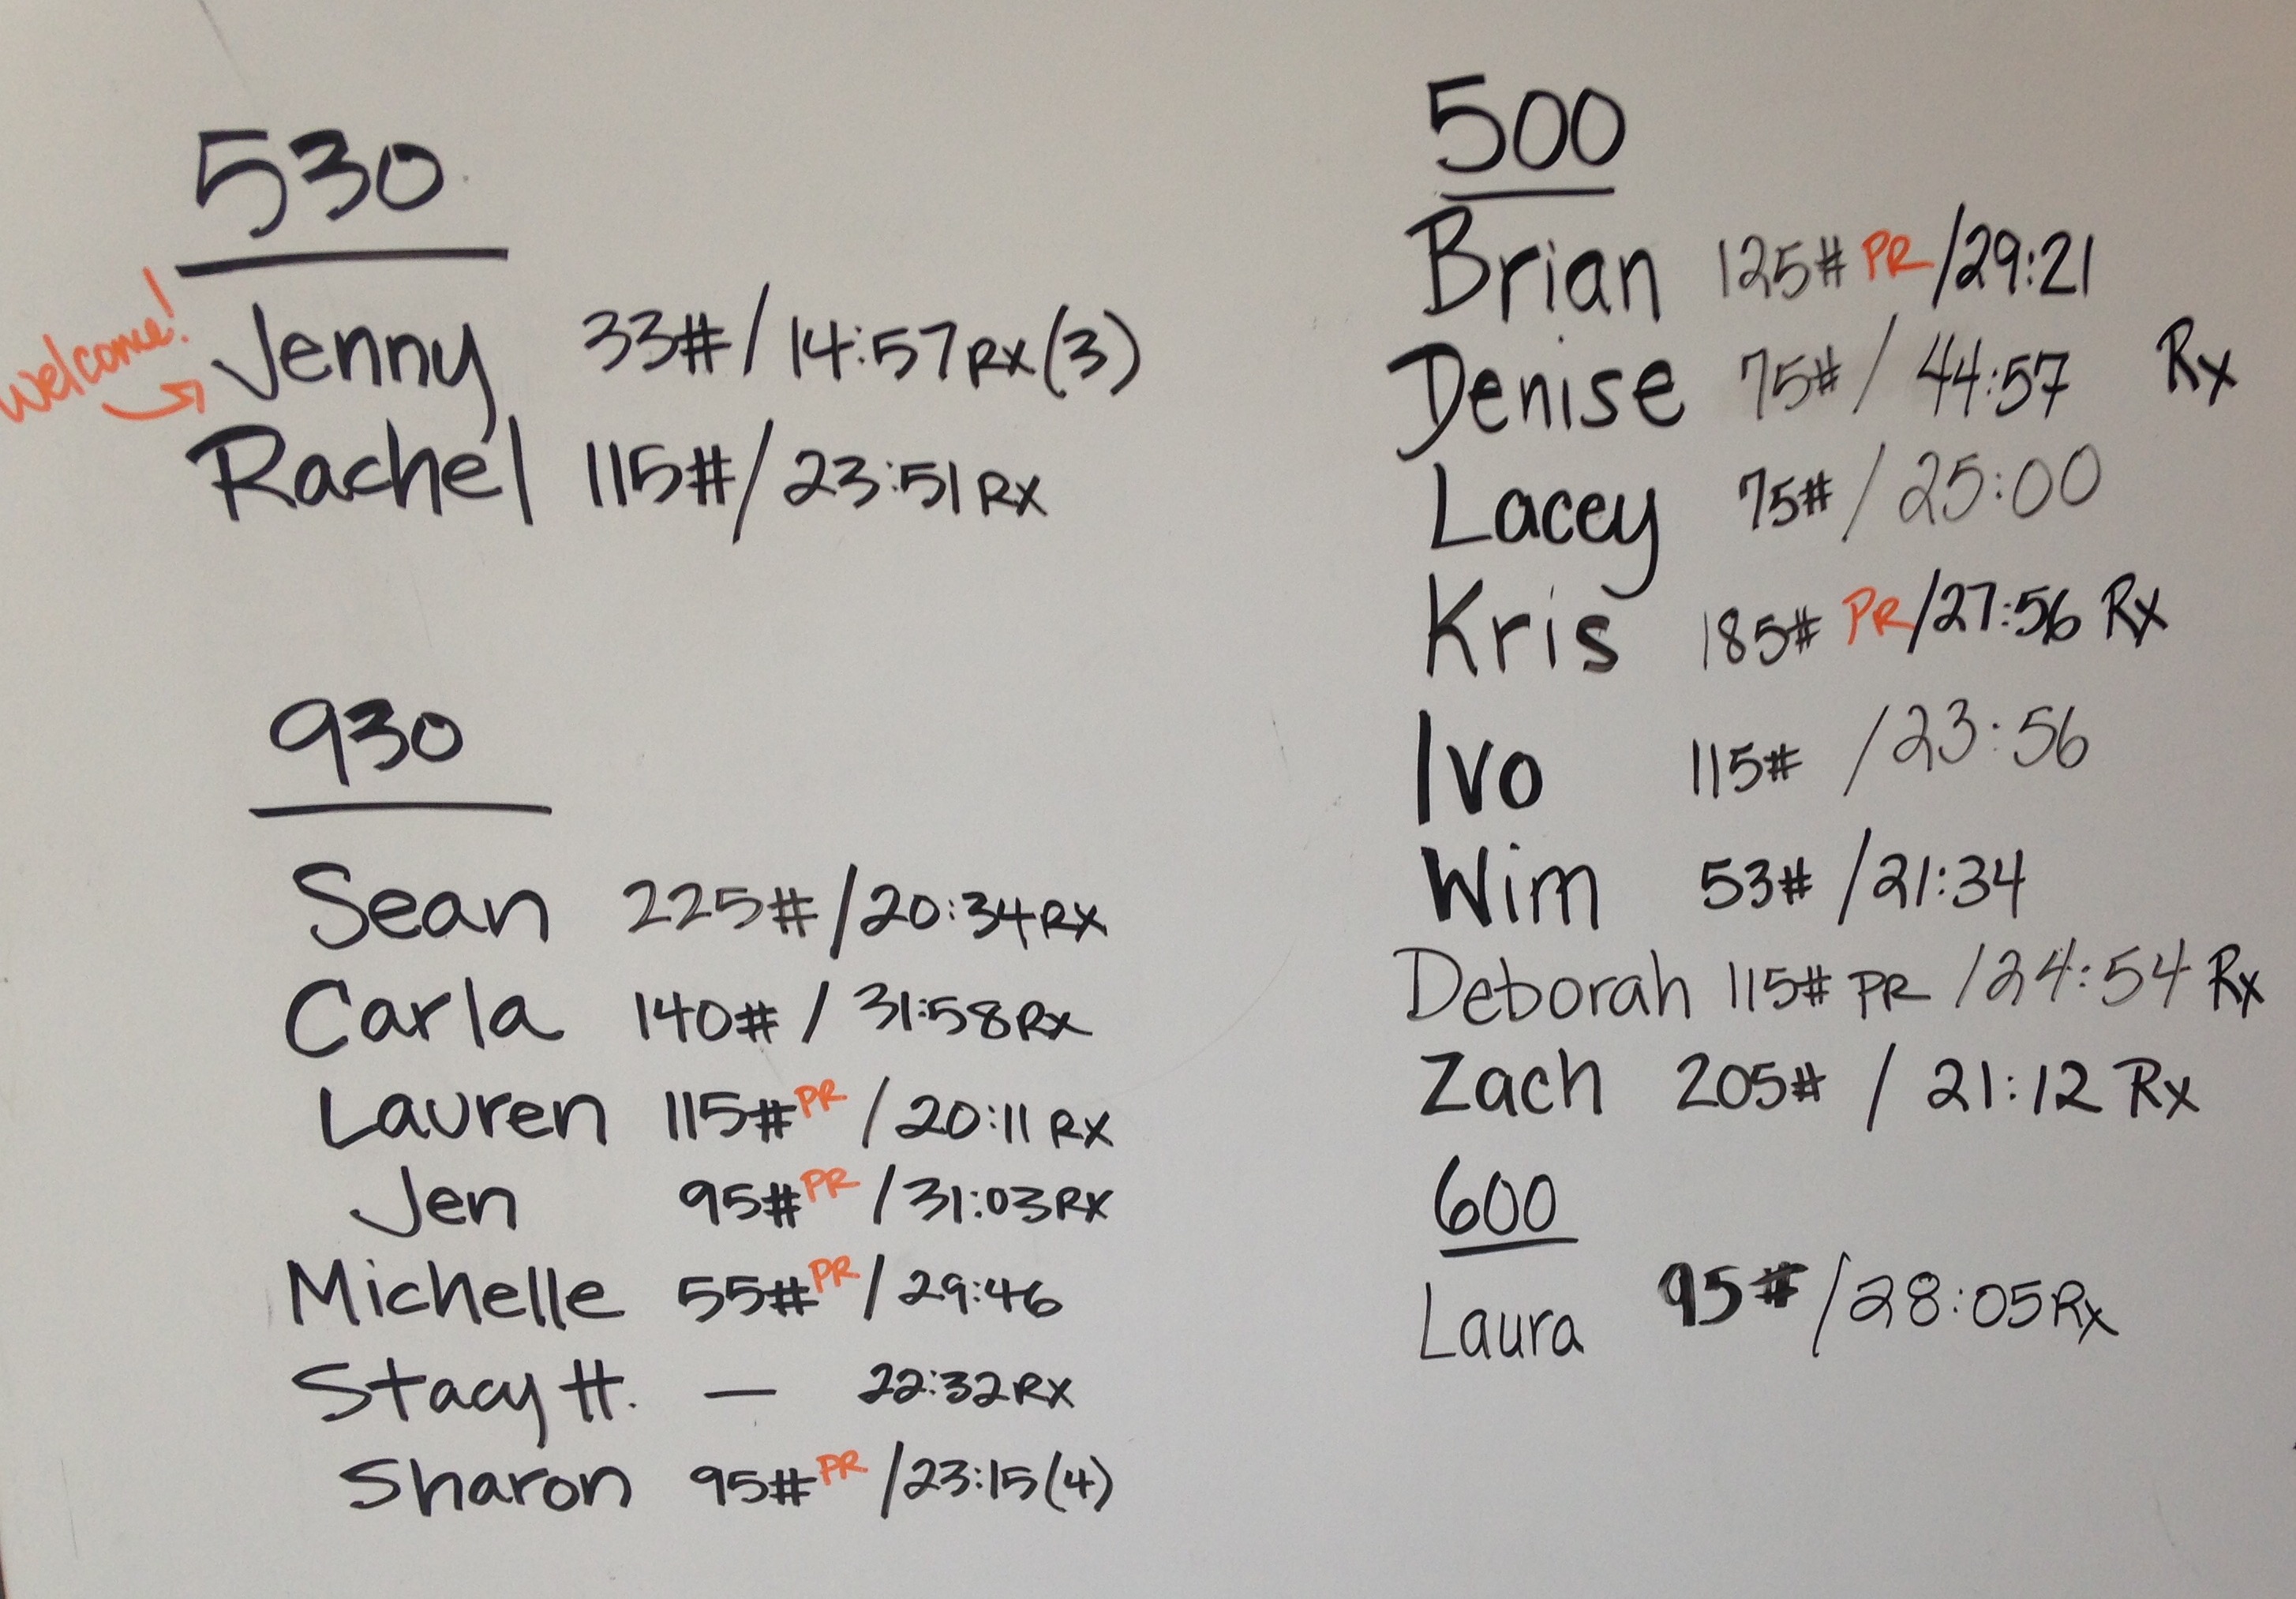 530
welcome!
Jenny 33# / 14:57 RX (3)
Rachel 115# / 23:51 RX
930
Sean 225# / 20:34 RX
Carla 140# / 31:58 RX
Lauren 115# PR / 20:11 RX
Jen 95# PR / 31:03 RX
Michelle 55# PR / 29:46
Stacy H. — 22:32 RX
Sharon 95# PR / 23:15 (4)
500
Brian 125# PR / 29:21
Denise 75# / 44:57 Rx
Lacey 75# / 25:00
Kris 185# PR / 27:56 Rx
Ivo 115# / 23:56
Wim 53# / 21:34
Deborah 115# PR / 24:54 Rx
Zach 205# / 21:12 Rx
600
Laura 95# / 28:05 Rx